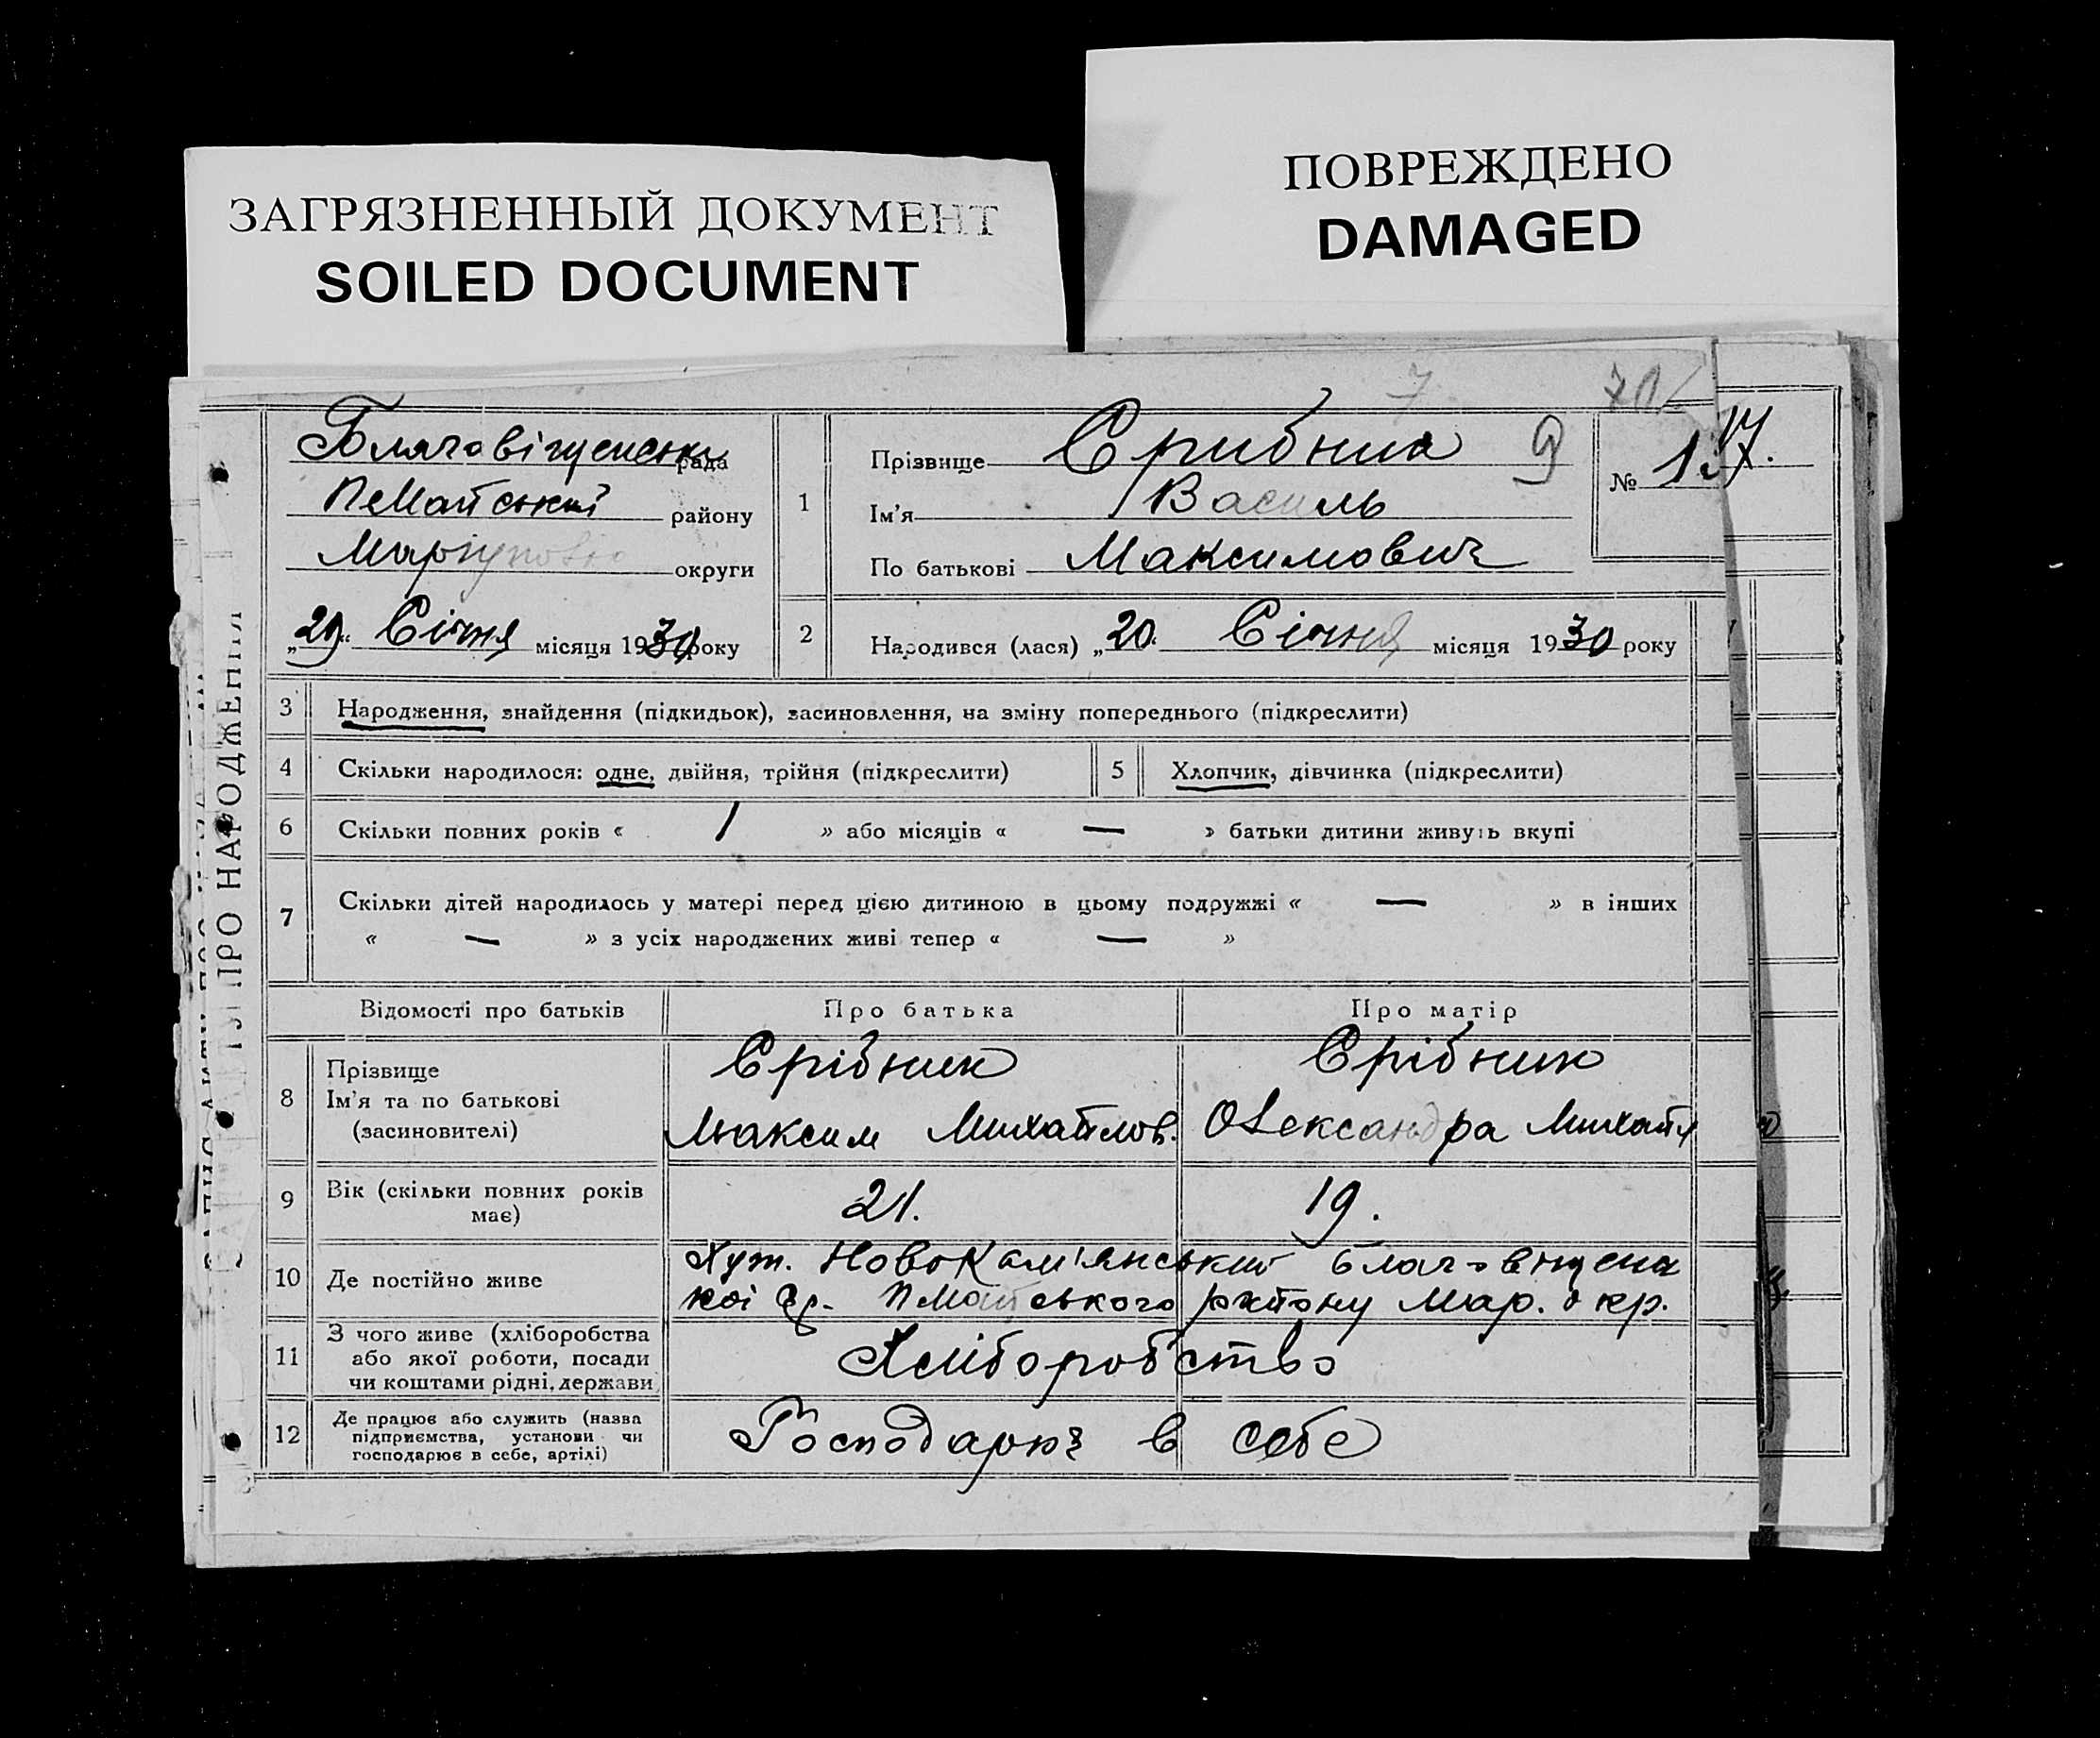 ЗАГРЯЗНЕННЫЙ ДОКУМЕНТ
SOILED DOCUMENT
ПОВРЕЖДЕНО
DAMAGED
7
Благовіщенська рада
ПеМайський району
округи
„29“ Січня місяця 1930 року
1
Прізвище Срибник
9
№
Ім'я Василь
По батькові Максимович
2
Народився (лася) „20. Січня місяця 1930 року
ПРО НАРОДЖЕННЯ
3 Народження, знайдення (підкидьок), засиновлення, на зміну попереднього (підкреслити)
4 Скільки народилося: одне, двійня, трійня (підкреслити) 5 Хлопчик, дівчинка (підкреслити)
6 Скільки повних років « / » або місяців « — » батьки дитини живуть вкупі
7 Скільки дітей народилось у матері перед цією дитиною в цьому подружжі « — » в інших
« — » з усіх народжених живі тепер « — »
Відомості про батьків Про батька Про матір
8 Прізвище
Ім'я та по батькові
(засиновителі)
Срібник
Максим Михайлов.
Срібник
Олександра Михайл
9 Вік (скільки повних років має)
21.
19.
10 Де постійно живе
Хут. НовоКам'янський Благовіщенсь
кої ПМайського району Мар. окр.
11 З чого живе (хліборобства
або якої роботи, посади
чи коштами рідні, держави
Хліборобство
12 Де працює або служить (назва
підприємства, установи чи
господарює в себе, артілі)
Господарює в себе